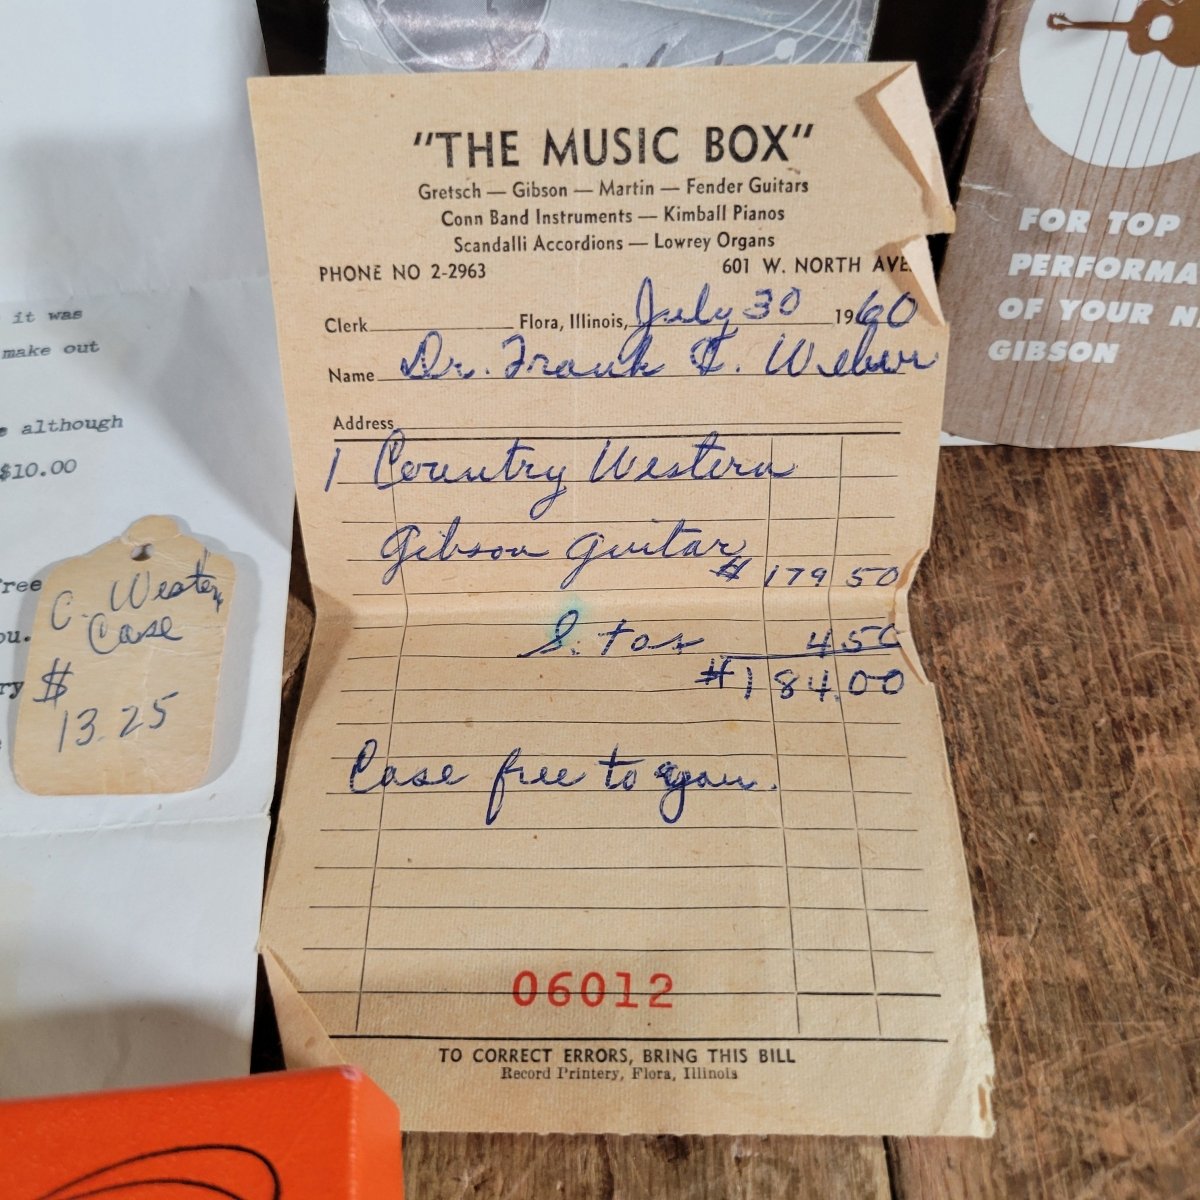 "THE MUSIC BOX"
Gretsch — Gibson — Martin — Fender Guitars
Conn Band Instruments — Kimball Pianos
Scandalli Accordions — Lowrey Organs
PHONE NO 2-2963 601 W. NORTH AVE.
Clerk Flora, Illinois, July 30 1960
Name Dr. Frank E. Weber
Address
1 Country Western
Gibson guitar
$ 179 50
S. tax 4 50
$ 184.00
Case free to you.
06012
TO CORRECT ERRORS, BRING THIS BILL
Record Printery, Flora, Illinois
it was
make out
although
$10.00
ree
ou.
ry
C. Western
Case
$
13.25
FOR TOP
PERFORMA
OF YOUR N
GIBSON